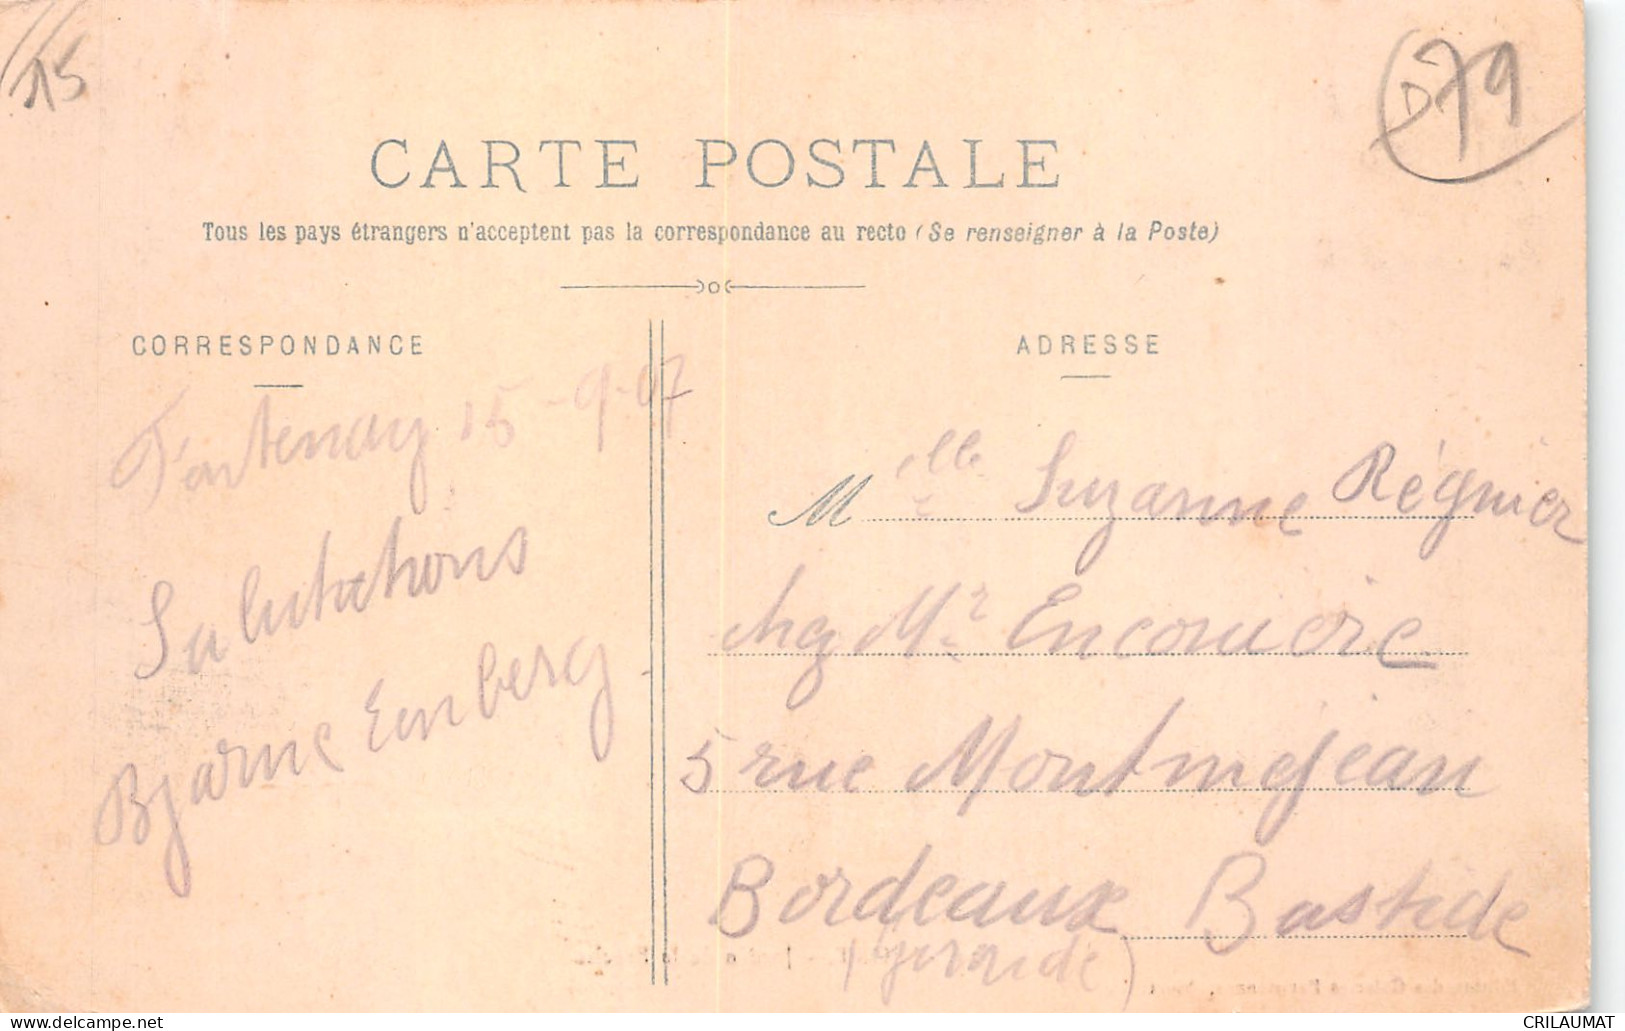 15
D 79
CARTE POSTALE
Tous les pays étrangers n'acceptent pas la correspondance au recto (Se renseigner à la Poste)
CORRESPONDANCE
Fontenay 15-9-07
Salutations
Bjarne Emberg
ADRESSE
Melle Suzanne Régnier
chez Mr
5 rue Montméjean
Bordeaux Bastide
(Gironde)
CRILAUMAT